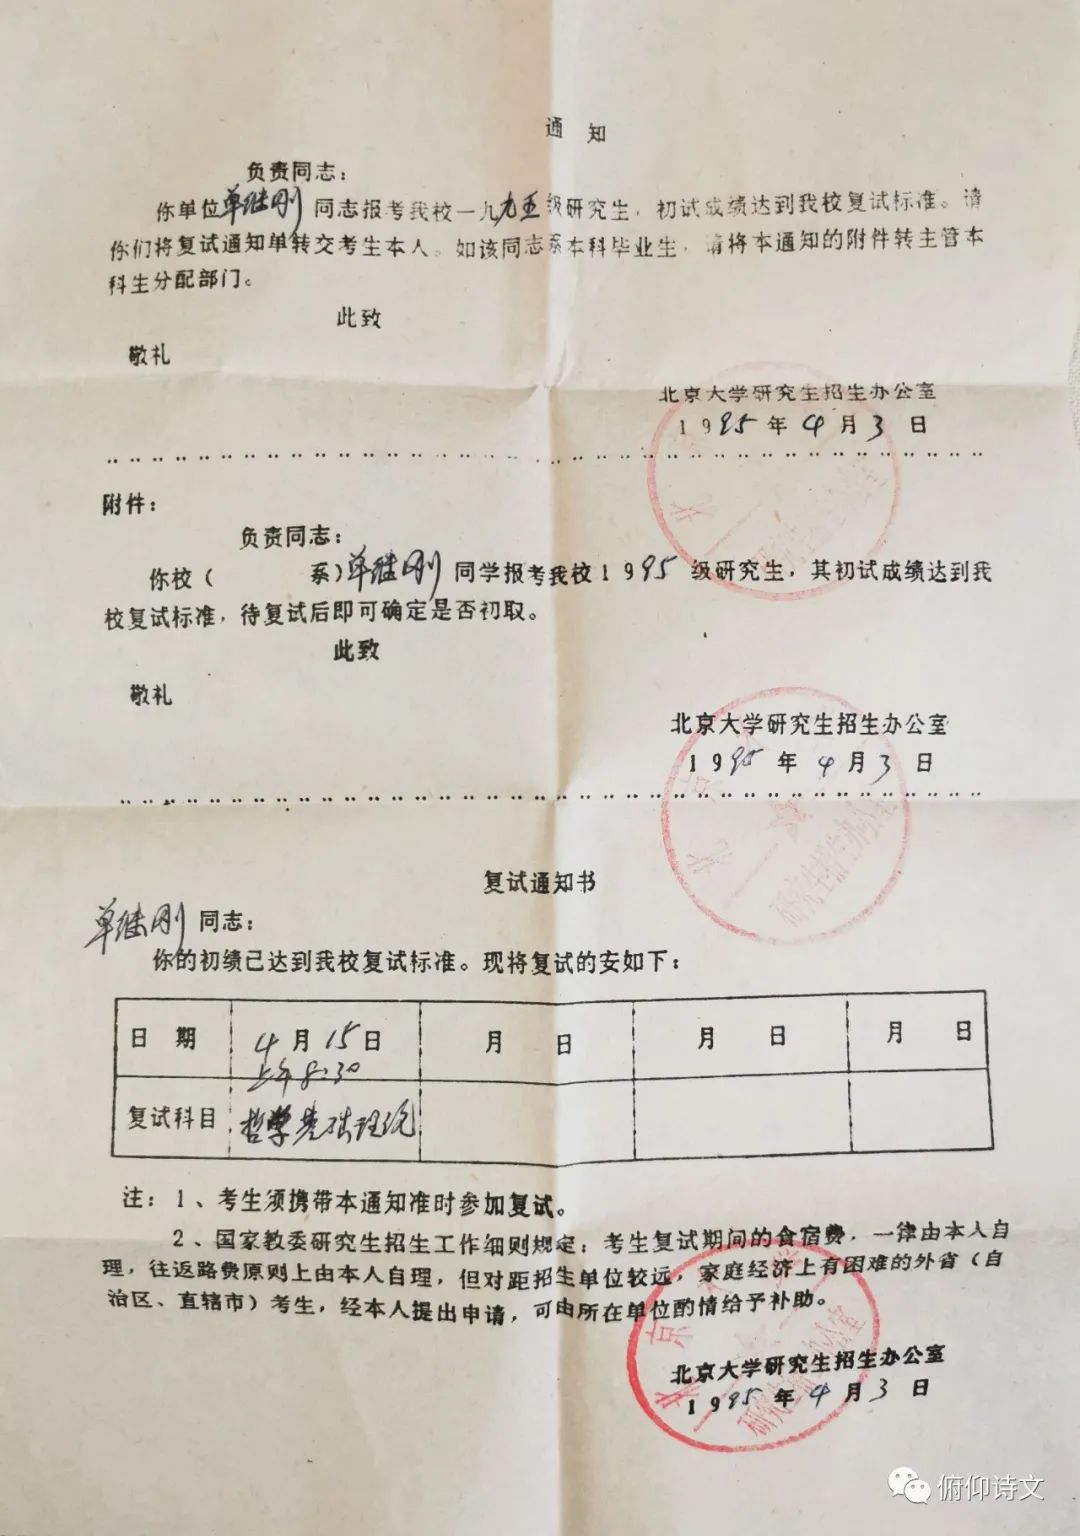 通 知
负责同志：
你单位单继刚同志报考我校一九九五级研究生，初试成绩达到我校复试标准。请
你们将复试通知单转交考生本人。如该同志系本科毕业生，请将本通知的附件转主管本
科生分配部门。
此致
敬礼
北京大学研究生招生办公室
1995年4月3日
附件：
负责同志：
你校（ 系）单继刚同学报考我校1995级研究生，其初试成绩达到我
校复试标准，待复试后即可确定是否初取。
此致
敬礼
北京大学研究生招生办公室
1995年4月3日
复试通知书
单继刚同志：
你的初绩已达到我校复试标准。现将复试的安如下：
日 期 4月15日 月 日 月 日 月 日
上午8:30
复试科目 哲学基础理论
注：1、考生须携带本通知准时参加复试。
2、国家教委研究生招生工作细则规定：考生复试期间的食宿费，一律由本人自
理，往返路费原则上由本人自理，但对距招生单位较远，家庭经济上有困难的外省（自
治区、直辖市）考生，经本人提出申请，可由所在单位酌情给予补助。
北京大学研究生招生办公室
1995年4月3日
俯仰诗文